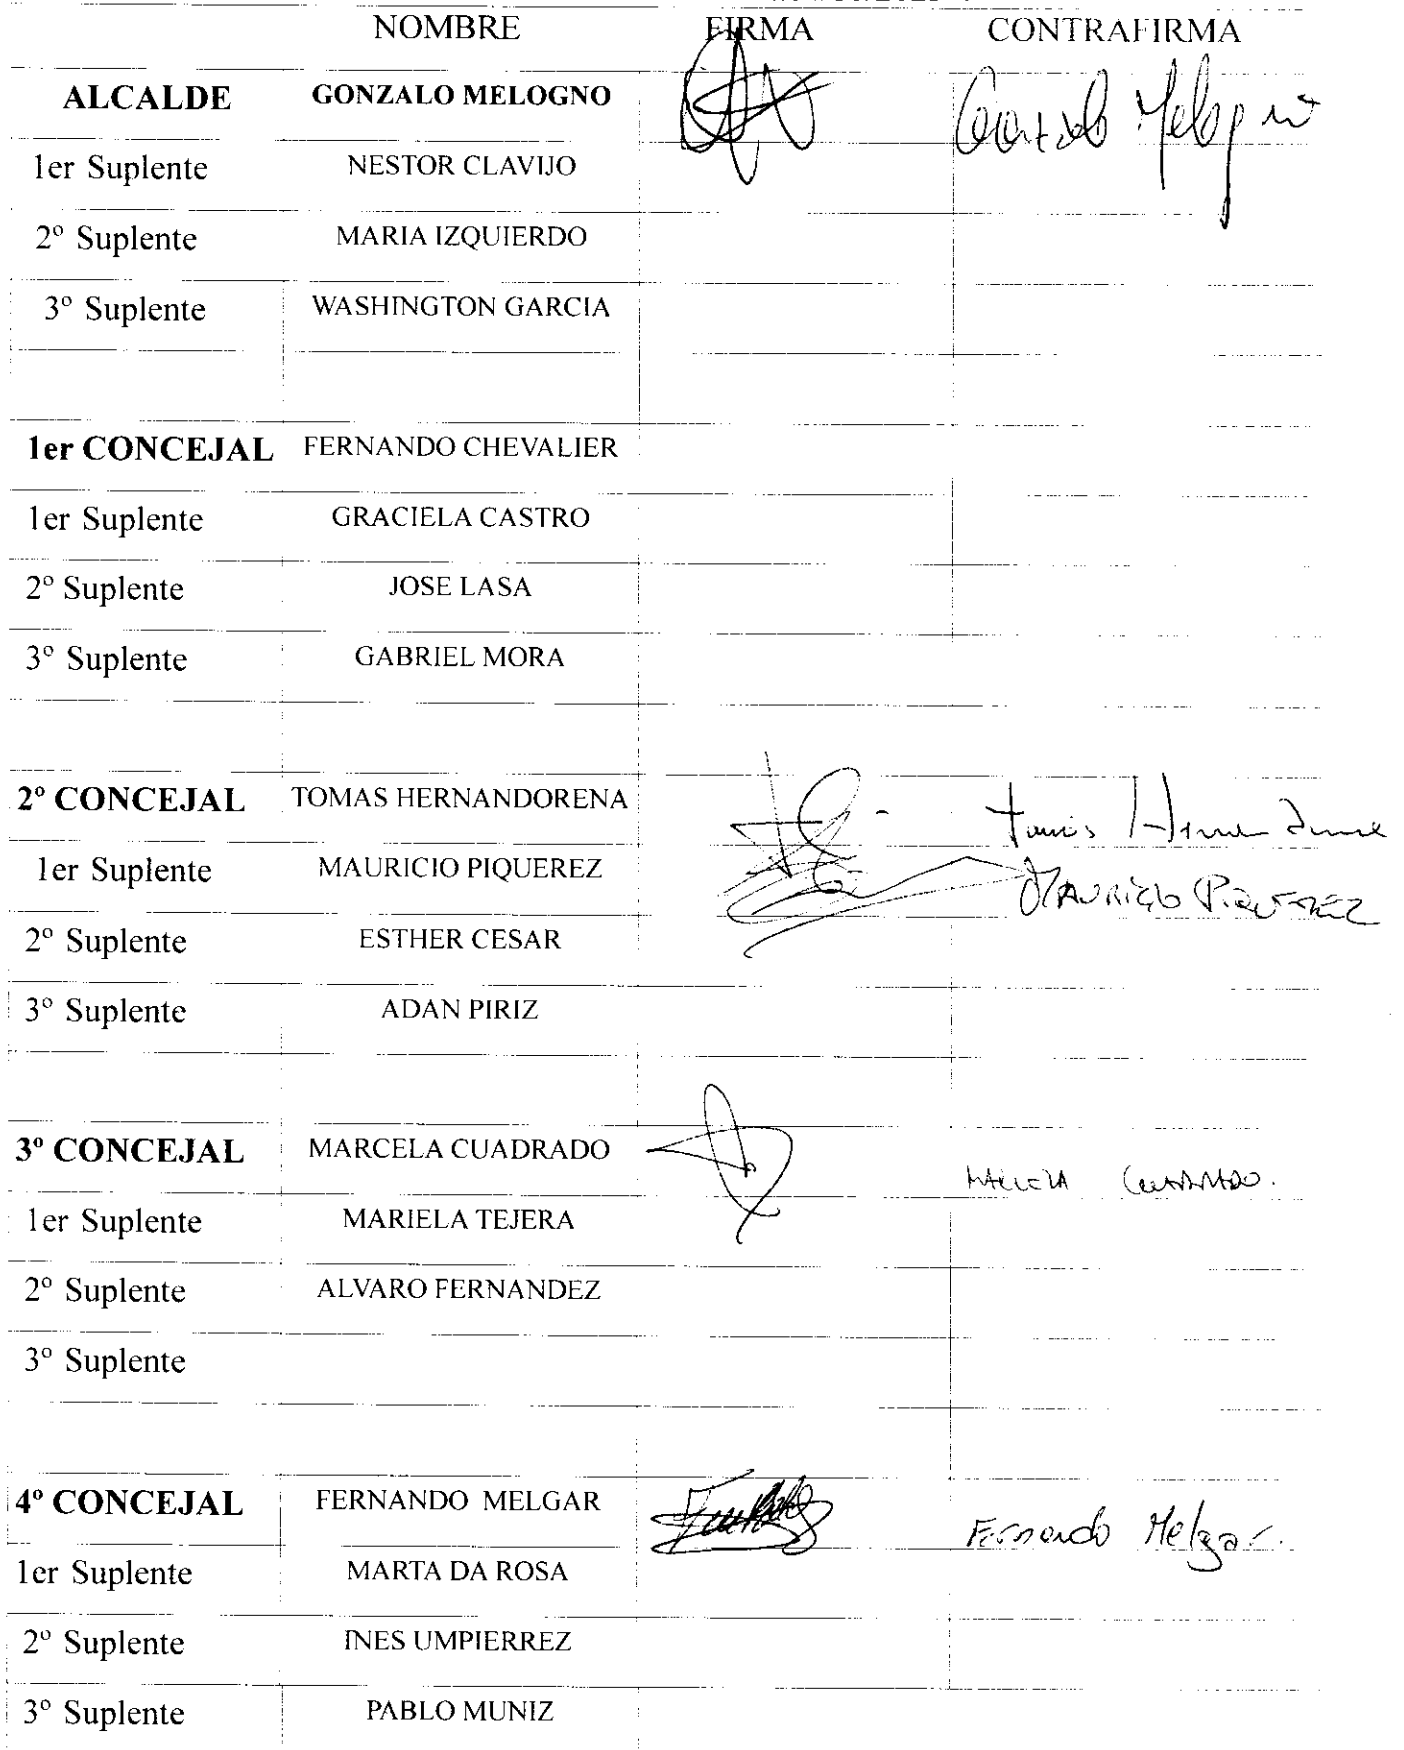 NOMBRE FIRMA CONTRAFIRMA
ALCALDE GONZALO MELOGNO Gonzalo Melogno
1er Suplente NESTOR CLAVIJO
2º Suplente MARIA IZQUIERDO
3º Suplente WASHINGTON GARCIA
1er CONCEJAL FERNANDO CHEVALIER
1er Suplente GRACIELA CASTRO
2º Suplente JOSE LASA
3º Suplente GABRIEL MORA
2º CONCEJAL TOMAS HERNANDORENA Tomás Hernandorena
1er Suplente MAURICIO PIQUEREZ MAURICIO PIQUEREZ
2º Suplente ESTHER CESAR
3º Suplente ADAN PIRIZ
3º CONCEJAL MARCELA CUADRADO MARCELA CUADRADO.
1er Suplente MARIELA TEJERA
2º Suplente ALVARO FERNANDEZ
3º Suplente
4º CONCEJAL FERNANDO MELGAR Fernando Melgar.
1er Suplente MARTA DA ROSA
2º Suplente INES UMPIERREZ
3º Suplente PABLO MUNIZ